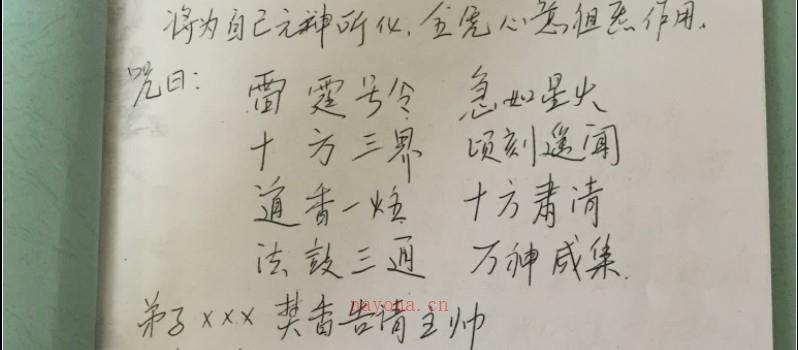 将为自己元神所化，全凭心意组炁作用。
咒曰：雷霆号令 急如星火
十方三界 顷刻遥闻
道香一炷 十方肃清
法鼓三通 万神咸集.
nayona.cn
弟子××× 焚香告请主帅